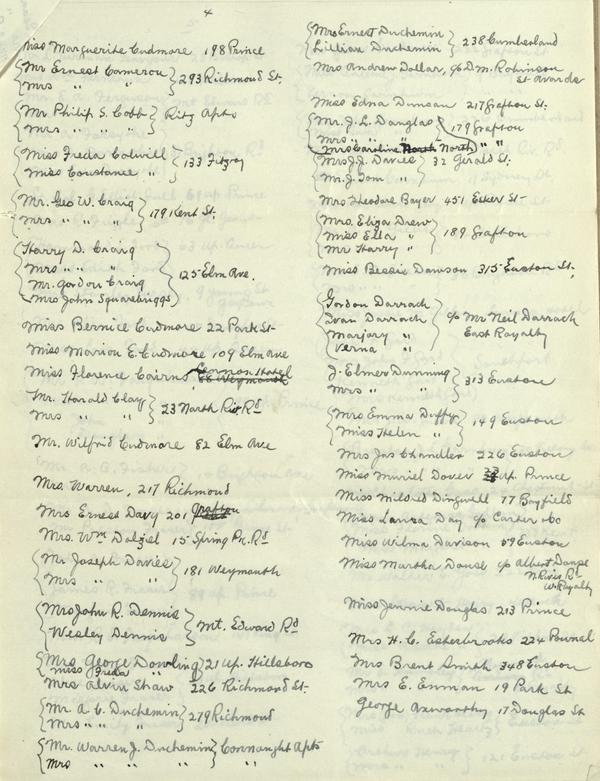 4
Miss Marguerite Cudmore 198 Prince
Mr Ernest Cameron
Mrs " " } 293 Richmond St.
Mr Philip S. Cobb
Mrs " " " } Ritz Apts
Miss Freda Colwill
Miss Constance " } 133 Fitzroy
Mr. Geo W. Craig
Mrs " " " } 179 Kent St.
Harry D. Craig
Mrs " " "
Mr. Gordon Craig
Mrs John Squarebriggs } 125 Elm Ave.
Miss Bernice Cudmore 22 Park St
Miss Marion E. Cudmore 109 Elm Ave
Miss Florence Cairns Lennon Hotel
Weymouth
Mr. Harold Clay
Mrs " " } 23 North Riv Rd
Mr. Wilfrid Cudmore 82 Elm Ave
Mrs. Warren, 217 Richmond
Mrs Ernest Davy 201 Grafton
Mrs. Wm Dalziel 15 Spring Pk. Rd
Mr Joseph Davies
Mrs " " } 181 Weymouth
Mrs John R. Dennis
Wesley Dennis } Mt. Edward Rd
Mrs George Dowling
Miss Freda " } 21 up. Hillsboro
Mrs Alvin Shaw 226 Richmond St.
Mr. A. C. Duchemin
Mrs " " " } 279 Richmond
Mr. Warren J. Duchemin } Connaught Apts
Mrs " " " " "
Mrs Ernest Duchemin
Lillian Duchemin } 238 Cumberland
Mrs Andrew Dollar, c/o D.M. Robinson
St Avards
Miss Edna Duncan 217 Grafton St.
Mr. J. L. Douglas
Mrs " " " } 179 Grafton
Mrs Caroline North " "
Mrs J. J. Davies
Mr. J. Tom " } 32 Gerald St.
Mrs Theodore Bayer 451 Esher St
Mrs. Eliza Drew
Miss Ella "
Mr Harry " } 189 Grafton
Miss Bessie Dawson 315 Euston St.
Gordon Darrach
Ivan Darrach
Marjory "
Verna " } c/o Mr Neil Darrach
East Royalty
J. Elmer Dunning
Mrs " " } 313 Euston
Mrs Emma Duffy
Miss Helen " } 149 Euston
Mrs Jas Chandler 226 Euston
Miss Muriel Dover up. Prince
Miss Mildred Dingwell 17 Bayfield
Miss Laura Day c/o Carter &Co
Miss Wilma Davison 59 Euston
Miss Martha Douse c/o Albert Douse
N River Rd
W. Royalty
Miss Jennie Douglas 213 Prince
Mrs H. C. Esterbrooks 224 Pownal
Mrs Brent Smith 348 Euston
Mrs E. Enman 19 Park St
George Axworthy 17 Douglas St